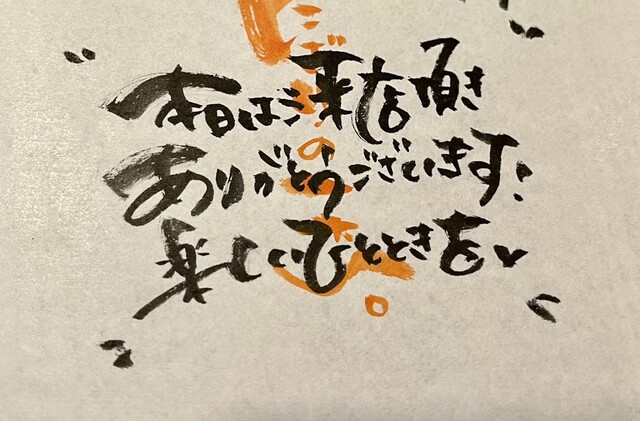 本日はご来店頂き
ありがとうございます!
楽しいひとときを♥